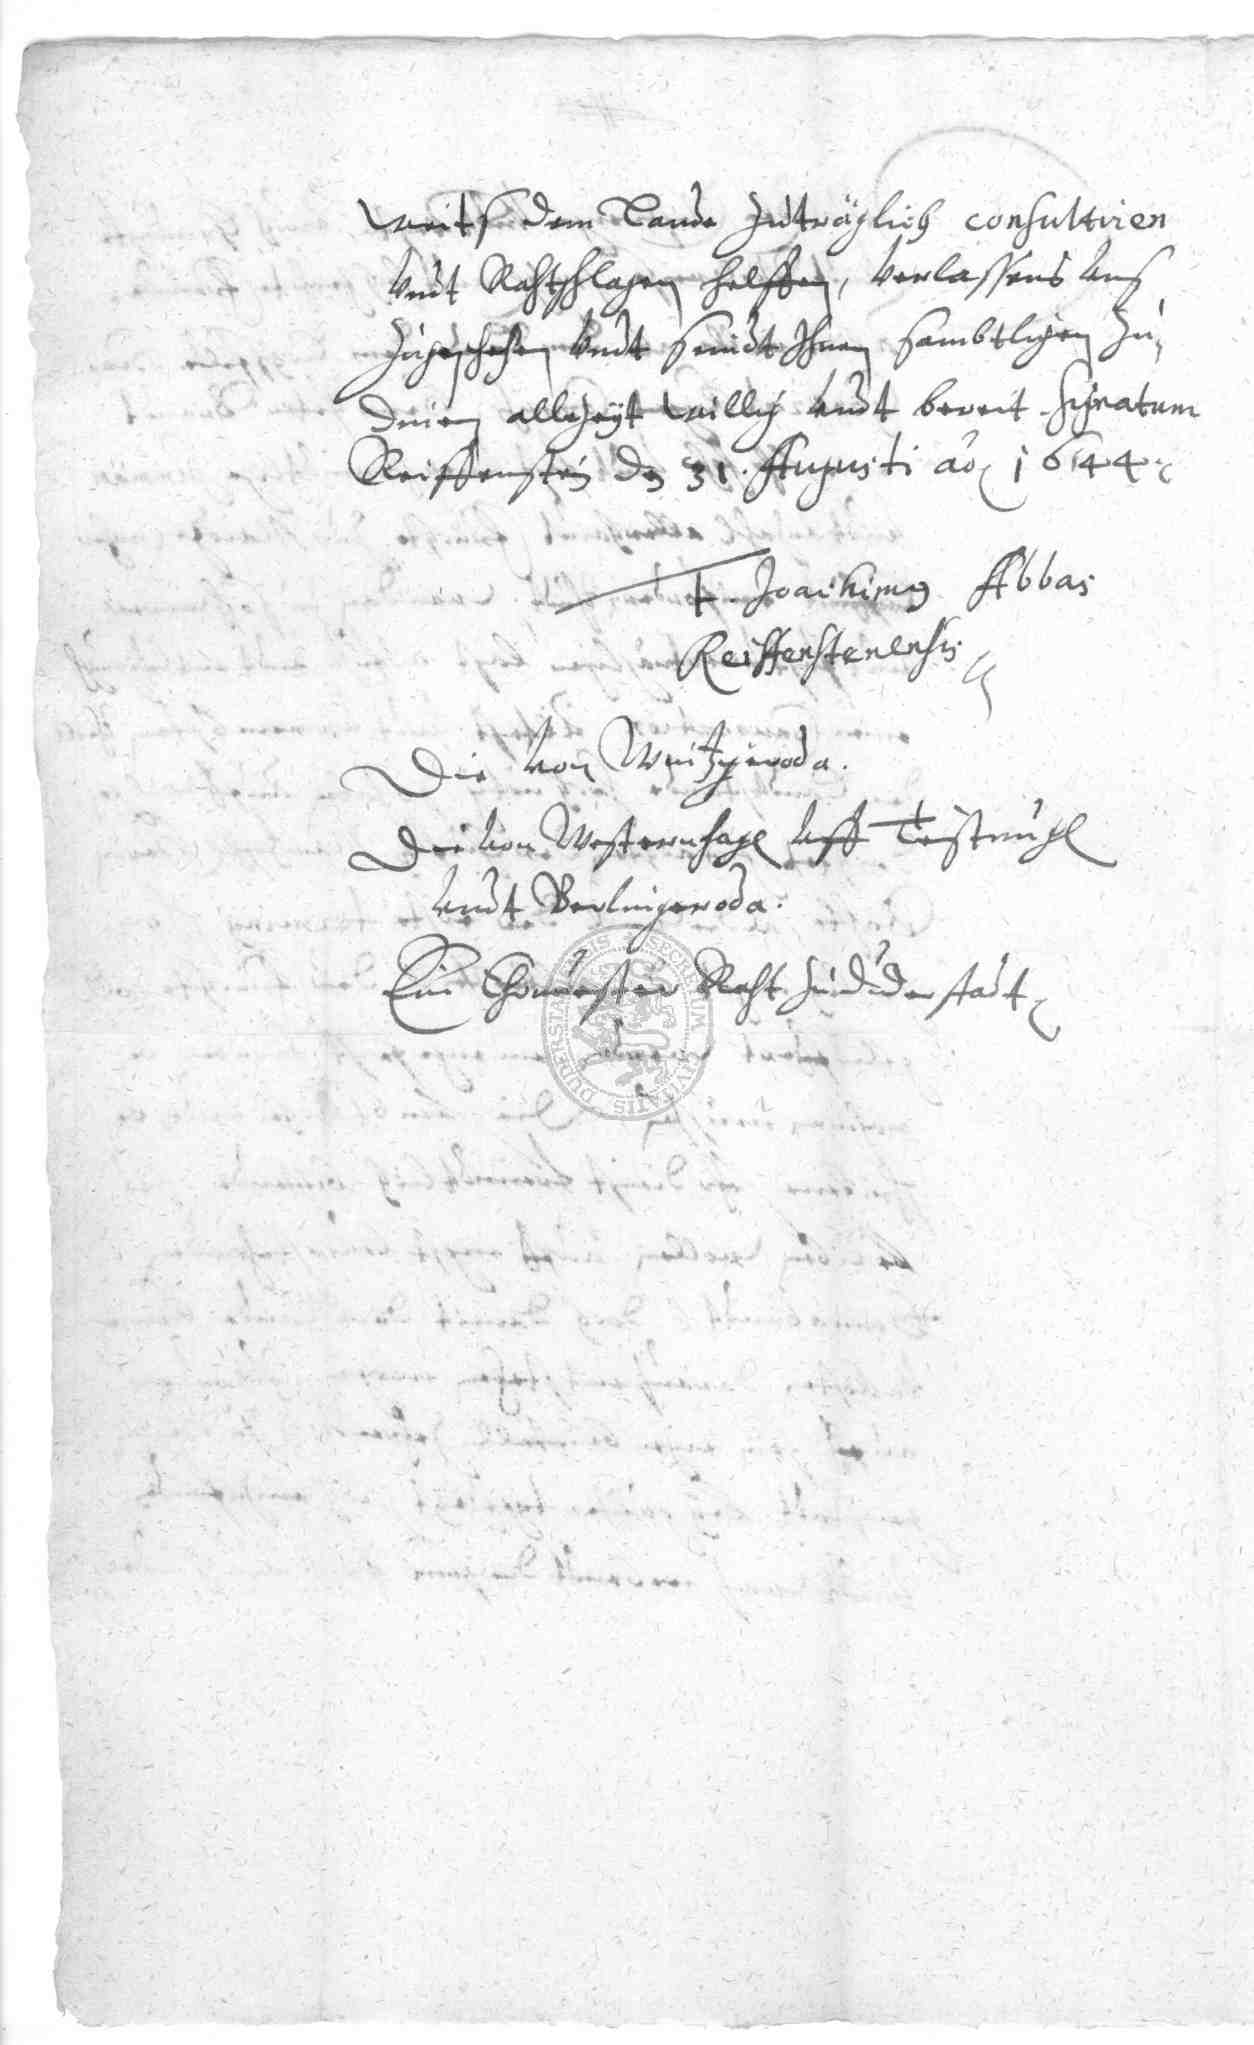 weits dem Lande zuträglich consultiren
undt Rahtschlagen helffen, verlassens uns
zugeschehen undt seindt Ihnen sambtlichen zu
dienen allezeyt willig undt bereit Signatum
Reiffenstein den 31. Augusti ao 1644
F. Joachimus Abbas
Reiffensteinensis
Die von Wintzigeroda.
Die von Westernhagen uff Teistungen
undt Berlingeroda.
Ein Ehrnvester Raht zu Duderstadt
SECRETUM CIVITATIS DUDERSTADENSIS